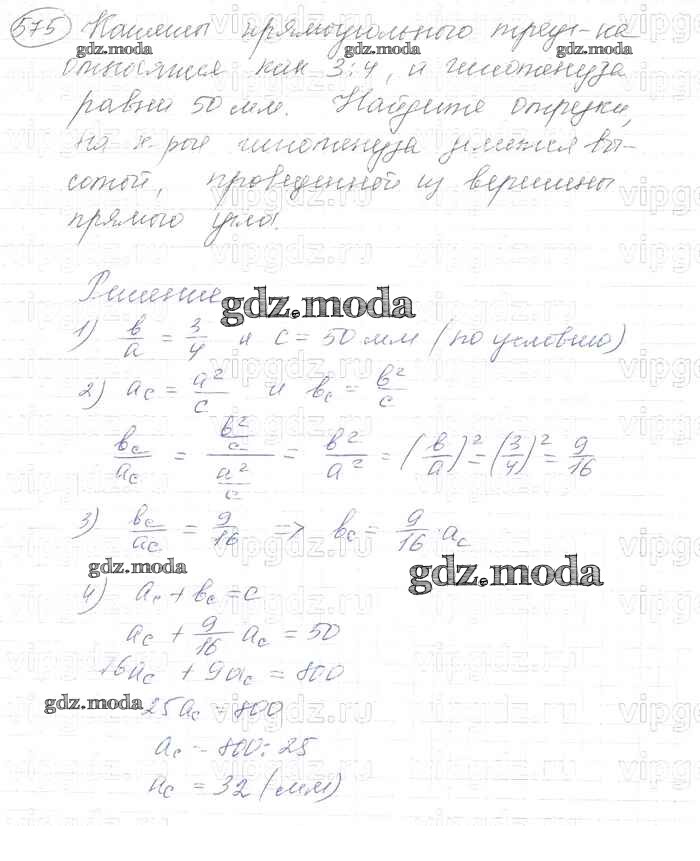 575 Катеты прямоугольного треуг-ка
относятся как 3:4, а гипотенуза
равна 50 мм. Найдите отрезки,
на к-рые гипотенуза делится вы-
сотой, проведенной из вершины
прямого угла.
Решение
gdz.moda
1) b/a = 3/4 и c = 50 мм (по условию)
2) a_c = a²/c и b_c = b²/c
b_c/a_c = (b²/c)/(a²/c) = b²/a² = (b/a)² = (3/4)² = 9/16
3) b_c/a_c = 9/16 => b_c = 9/16 a_c
gdz.moda
gdz.moda
4) a_c + b_c = c
a_c + 9/16 a_c = 50
16a_c + 9a_c = 800
gdz.moda
25a_c = 800
a_c = 800:25
a_c = 32 (мм)